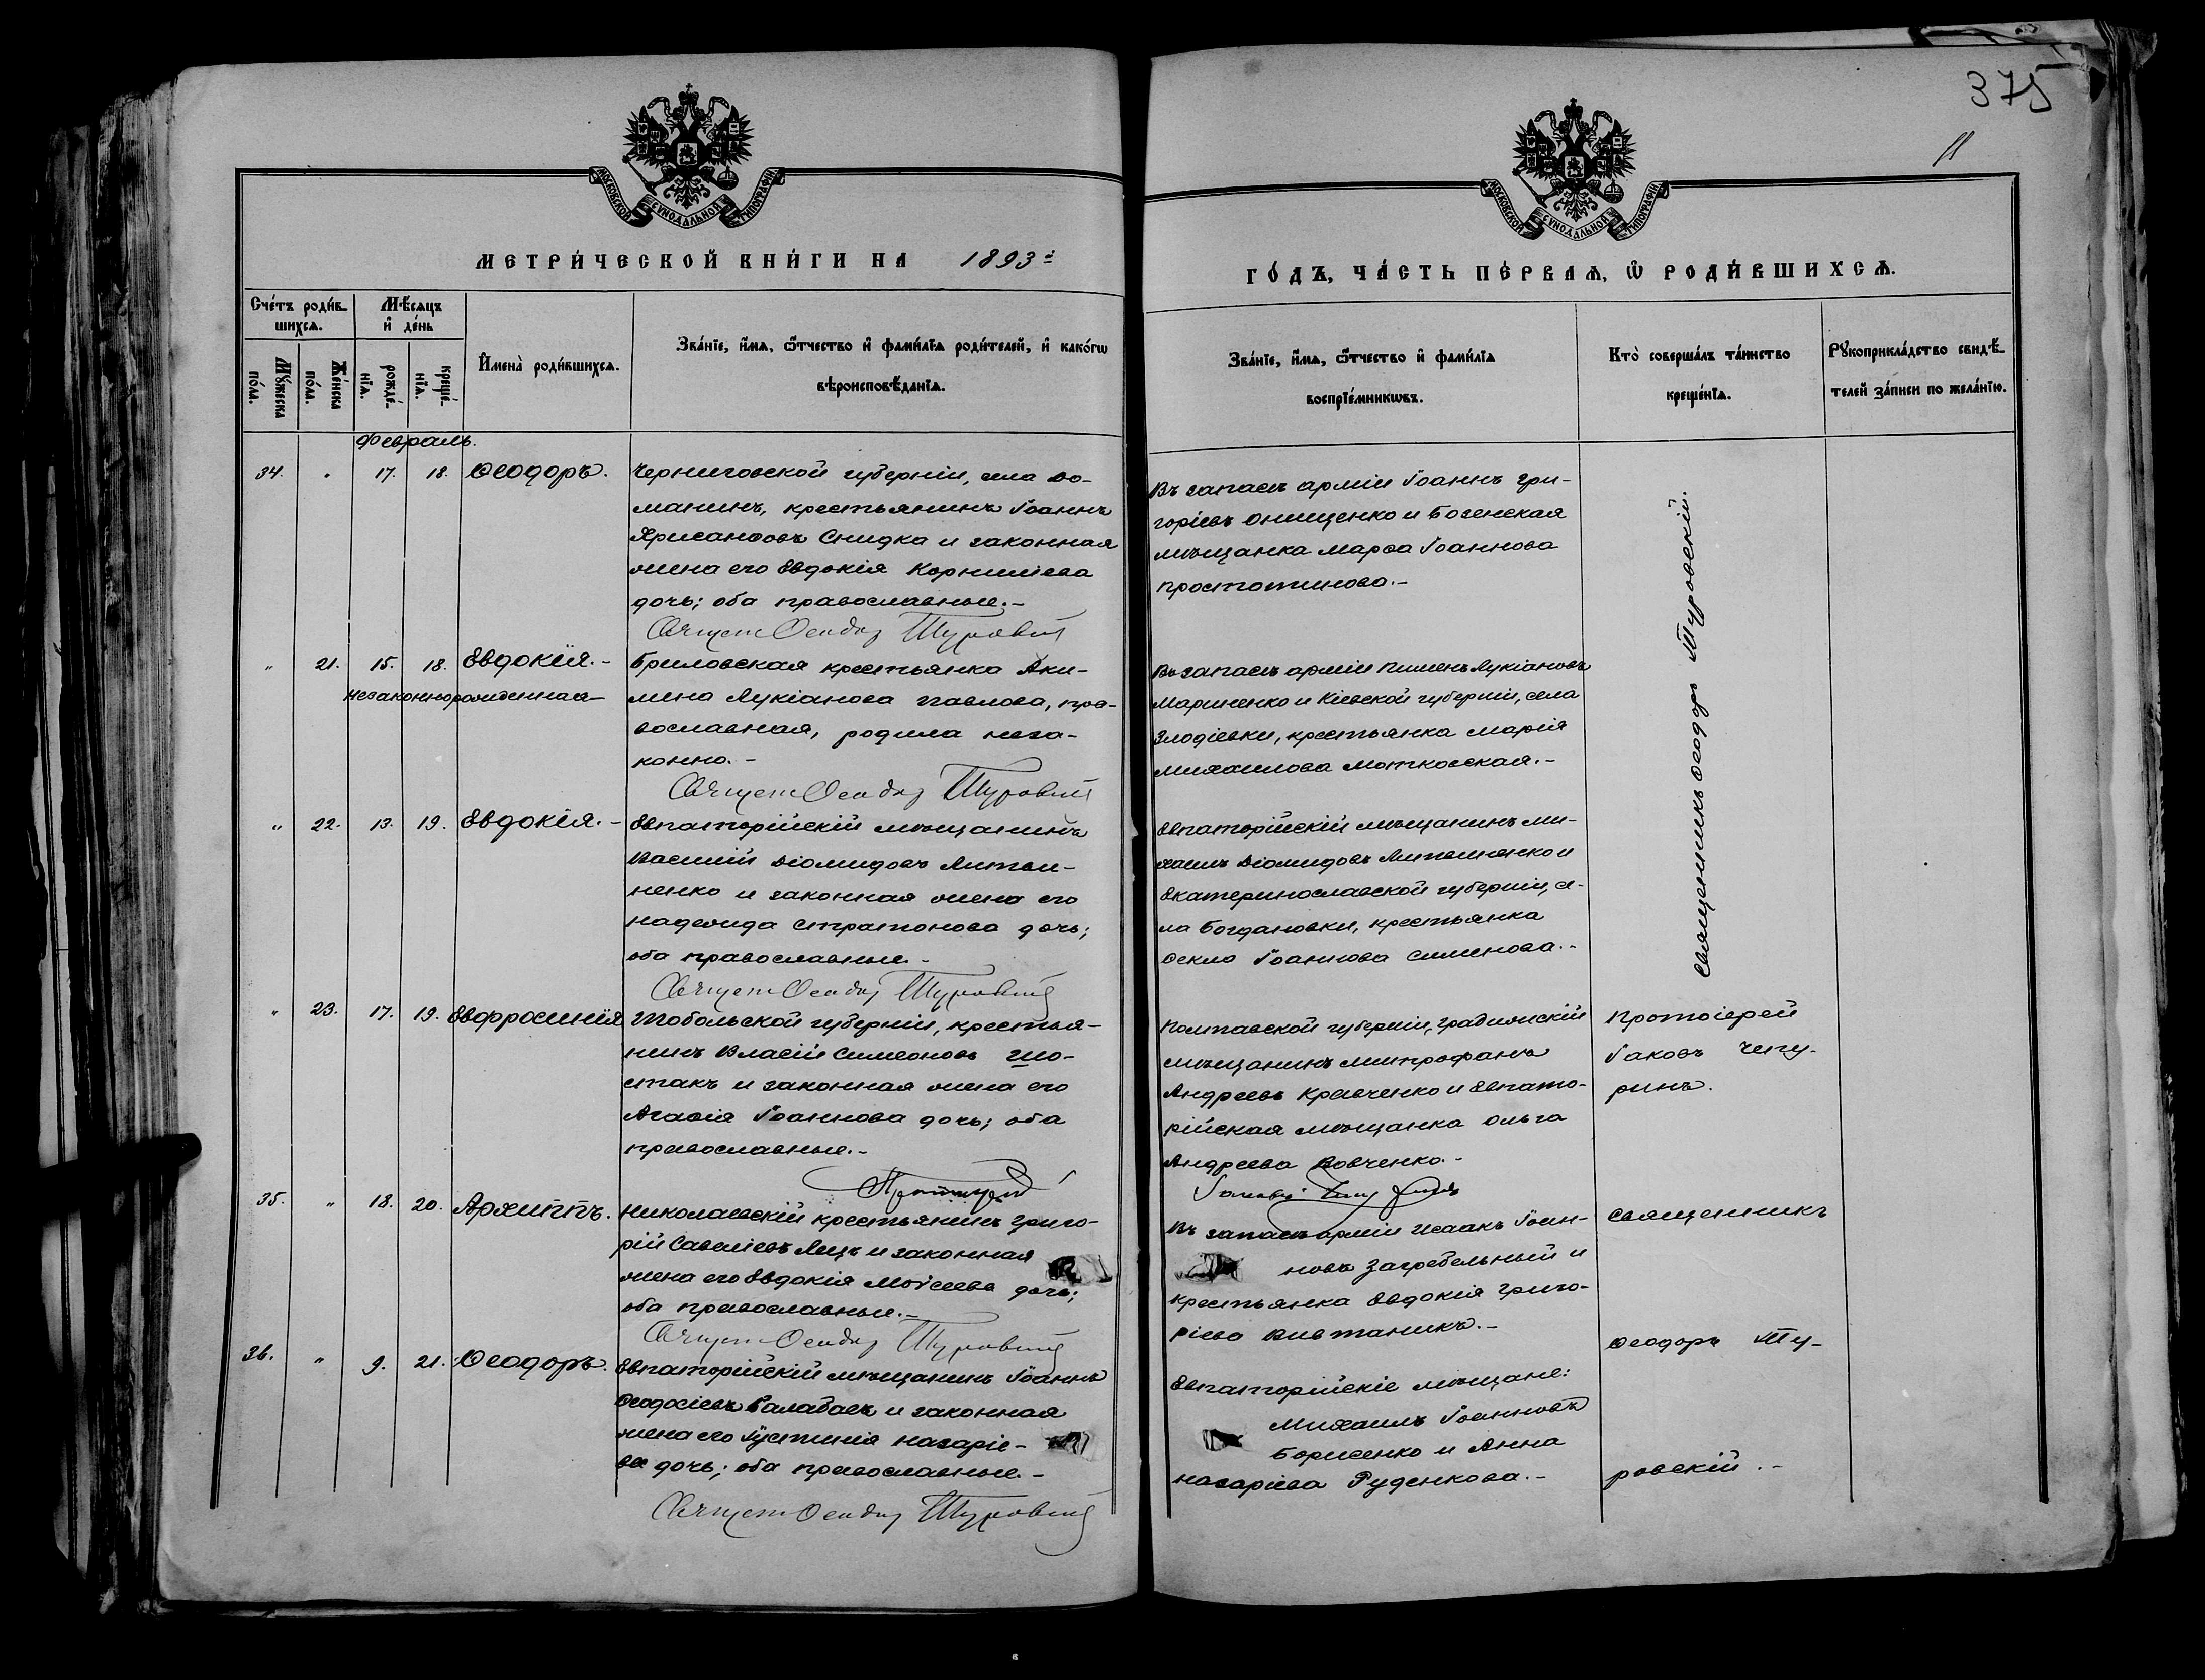 375
11
МОСКОВСКОЙ СѴНОДАЛЬНОЙ ТИПОГРАФІИ
МОСКОВСКОЙ СѴНОДАЛЬНОЙ ТИПОГРАФІИ
МЕТРИ́ЧЕСКОЙ КНИ́ГИ НА 1893й
ГО́ДЪ, ЧА́СТЬ ПЕ́РВАѦ, Ѽ РОДИ́ВШИХСѦ.
Сче́тъ роди́в-
шихсѧ.
Мꙋ́жеска по́ла.
Же́нска по́ла.
Мѣ́сѧцъ
и҆ де́нь
рожде́-
нїѧ.
креще́-
нїѧ.
И҆мена̀ роди́вшихсѧ.
Зва́нїе, и҆́мѧ, ѻ҆́тчество и҆ фами́лїѧ роди́телей, и҆ како́гѡ
вѣроисповѣ́данїѧ.
Зва́нїе, и҆́мѧ, ѻ҆́тчество и҆ фами́лїѧ
воспрїе́мникѡвъ.
Кто̀ соверша́лъ та́инство
креще́нїѧ.
Рꙋкоприкла́дство свидѣ́-
телей за́писи по жела́нїю.
Февраль.
34. " 17. 18. Ѳеодоръ.
Черниговской губерніи, села До-
манинъ, крестьянинъ Іоаннъ
Хрисанѳовъ Снидка и законная
жена его Евдокія Корниліева
дочь; оба православные.-
Священ Ѳеодор Туровский
Въ запасѣ арміи Іоаннъ Гри-
горіевъ Онищенко и
мѣщанка Марѳа Іоаннова
Простотинова.-
Священникъ Ѳеодоръ Туровскій.
" 21. 15. 18. Евдокія.-
Незаконнорожденная-
Бриловская крестьянка Аки-
лина Лукіанова Павлова, пра-
вославная, родила неза-
конно.-
Священ Ѳеодор Туровский
Въ запасѣ арміи Пименъ Лукіановъ
Мариненко и Кіевской губерніи, села
Злодіевки, крестьянка Марія
Михаилова Матковская.-
" 22. 13. 19. Евдокія.-
Евпаторійскій мѣщанинъ
Василій Діомидовъ Литви-
ненко и законная жена его
Надежда Стратонова дочь;
оба православные.-
Священ Ѳеодор Туровский
Евпаторійскій мѣщанинъ Ми-
хаилъ Діомидовъ Литвиненко и
Екатеринославской губерніи, се-
ла Богдановки, крестьянка
Ѳекла Іоаннова Симинова.-
" 23. 17. 19. Евфросинія
Тобольской губерніи, крестья-
нинъ Власій Симеоновъ Шо-
стакъ и законная жена его
Агаѳія Іоаннова дочь; оба
православные.-
Протоиерей
Полтавской губерніи, Градижскій
мѣщанинъ Митрофанъ
Андреевъ Кравченко и Евпато-
рійская мѣщанка Ольга
Андреева Вовченко.-
Іаковъ Чепурин
Протоіерей
Іаковъ Чепу-
ринъ.
35. " 18. 20. Архиппъ.
Николаевскій крестьянинъ Григо-
рій Савеліевъ Лещъ и законная
жена его Евдокія Моѵсеева дочь;
оба православные.-
Священ Ѳеодор Туровский
Въ запасѣ арміи Исаакъ Іоан-
новъ Загребельный и
крестьянка Евдокія Григо-
ріева Вивтаникъ.-
Священникъ
36. " 9. 21. Ѳеодоръ.
Евпаторійскій мѣщанинъ Іоаннъ
Ѳеодосіевъ Балабасъ и законная
жена его Іустинія Назаріе-
ва дочь; оба православные.-
Священ Ѳеодор Туровский
Евпаторійскіе мѣщане:
Михаилъ Іоанновъ
Борисенко и Анна
Назаріева Руденкова.-
Ѳеодоръ Ту-
ровскій.-